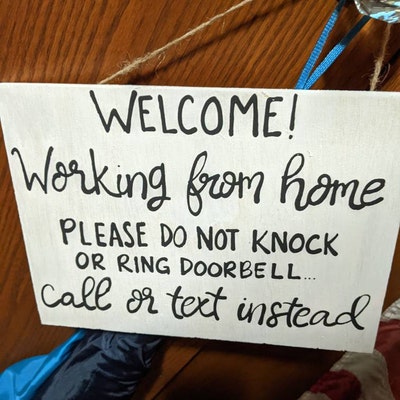 WELCOME!
Working from home
PLEASE DO NOT KNOCK
OR RING DOORBELL...
Call or text instead